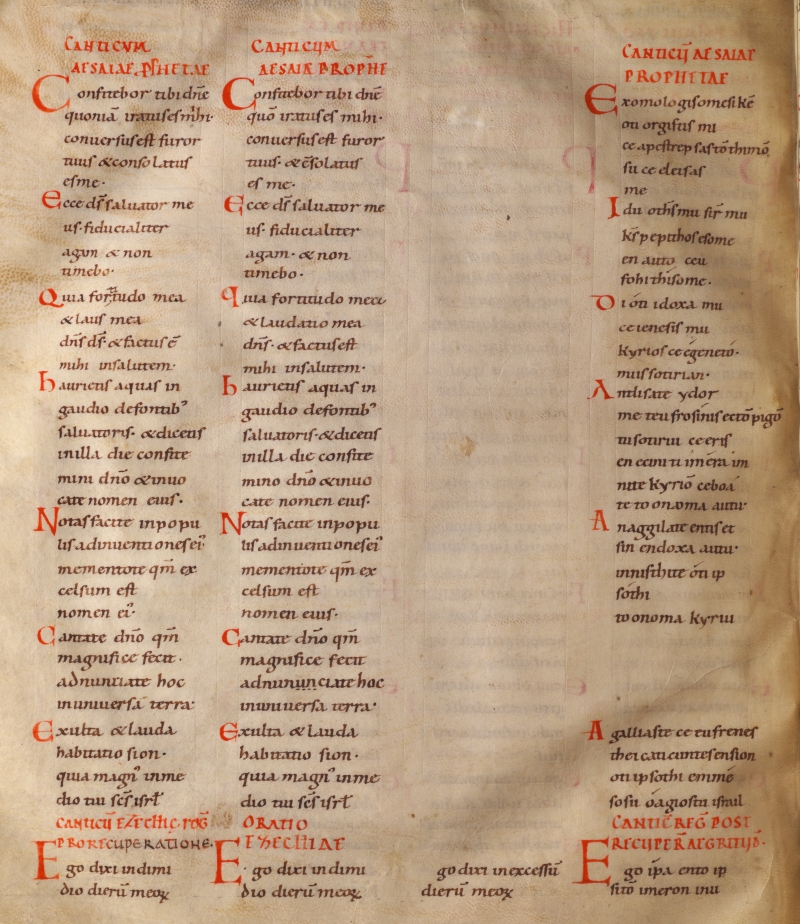 CANTICVM
AESAIAE PPHETAE
Confitebor tibi dne
quoniā iratus es mihi·
conuersus est furor
tuus & consolatus
es me·
Ecce ds saluator me
us· fiducialiter
agam & non
timebo·
Quia fortitudo mea
& laus mea
dns ds· & factus ē
mihi insalutem·
haurietis aquas in
gaudio defontib'
saluatoris· & dicetis
inilla die confite
mini dno & inuo
cate nomen eius·
Notas facite inpopu
lis adinuentiones ei'
mementote qm ex
celsum est
nomen ei'·
Cantate dno qm
magnifice fecit·
adnunciate hoc
inuniuersā terra:
Exulta & lauda
habitatio sion·
quia magn' inme
dio tui scs isrl
CANTICŪ EZECHIE· REG
PRO RECUPERATIONE·
Ego dixi indimi
dio dierū meoꝝ
CANTICUM
AESAIAE PROPHE
Confitebor tibi dne
quō iratus es mihi·
conuersus est furor
tuus· & cōsolatus
es me·
Ecce ds saluator me
us· fiducialiter
agam· & non
timebo·
Quia fortitudo mea
& laudatio mea
dns· & factus est
mihi insalutem·
haurietis aquas in
gaudio defontib'
saluatoris· & dicetis
inilla die confite
mino dno & inuo
cate nomen eius·
Notas facite inpopu
lis adinuentiones ei'
mementote qm ex
celsum est
nomen eius·
Cantate dno qm
magnifice fecit
adnununciate hoc
inuniuersa terra·
Exulta & lauda
habitatio sion·
quia magn' inme
dio tui scs isrl
ORATIO
EZECHIAE
Ego dixi indimi
dio dierū meoꝝ
go dixi inexcessū
dierū meoꝝ
CANTICŪ AESAIAE
PROPHETAE
Exomologisomesi kē
oti orgistis mi
ce apestrepsas tō thimō
su ce eleisas
me
Idu o ths mu sir mu
ks pepithos esome
en auto ceu
fohithisome·
Dioti idoxa mu
ce ienesis mu
kyrios ce egeneto·
mi is sotirian·
Antlisate ydor
me teufrosinis ectō pigō
tu sotiriu ce eris
en ecini ti imera im
nite kyriō ceboa
te to onoma autu·
Anaggilate entis et
sin endoxa autu·
innisthite oti ip
sothi
to onoma kyriu
Agalliaste ce eufrenes
the i caticuntes en sion
oti ipsothi emme
so su o agios tu israil
CANTIC REG POST
RECUPER AEGRITUD·
Ego ipa en to ip
si tō imeron mu